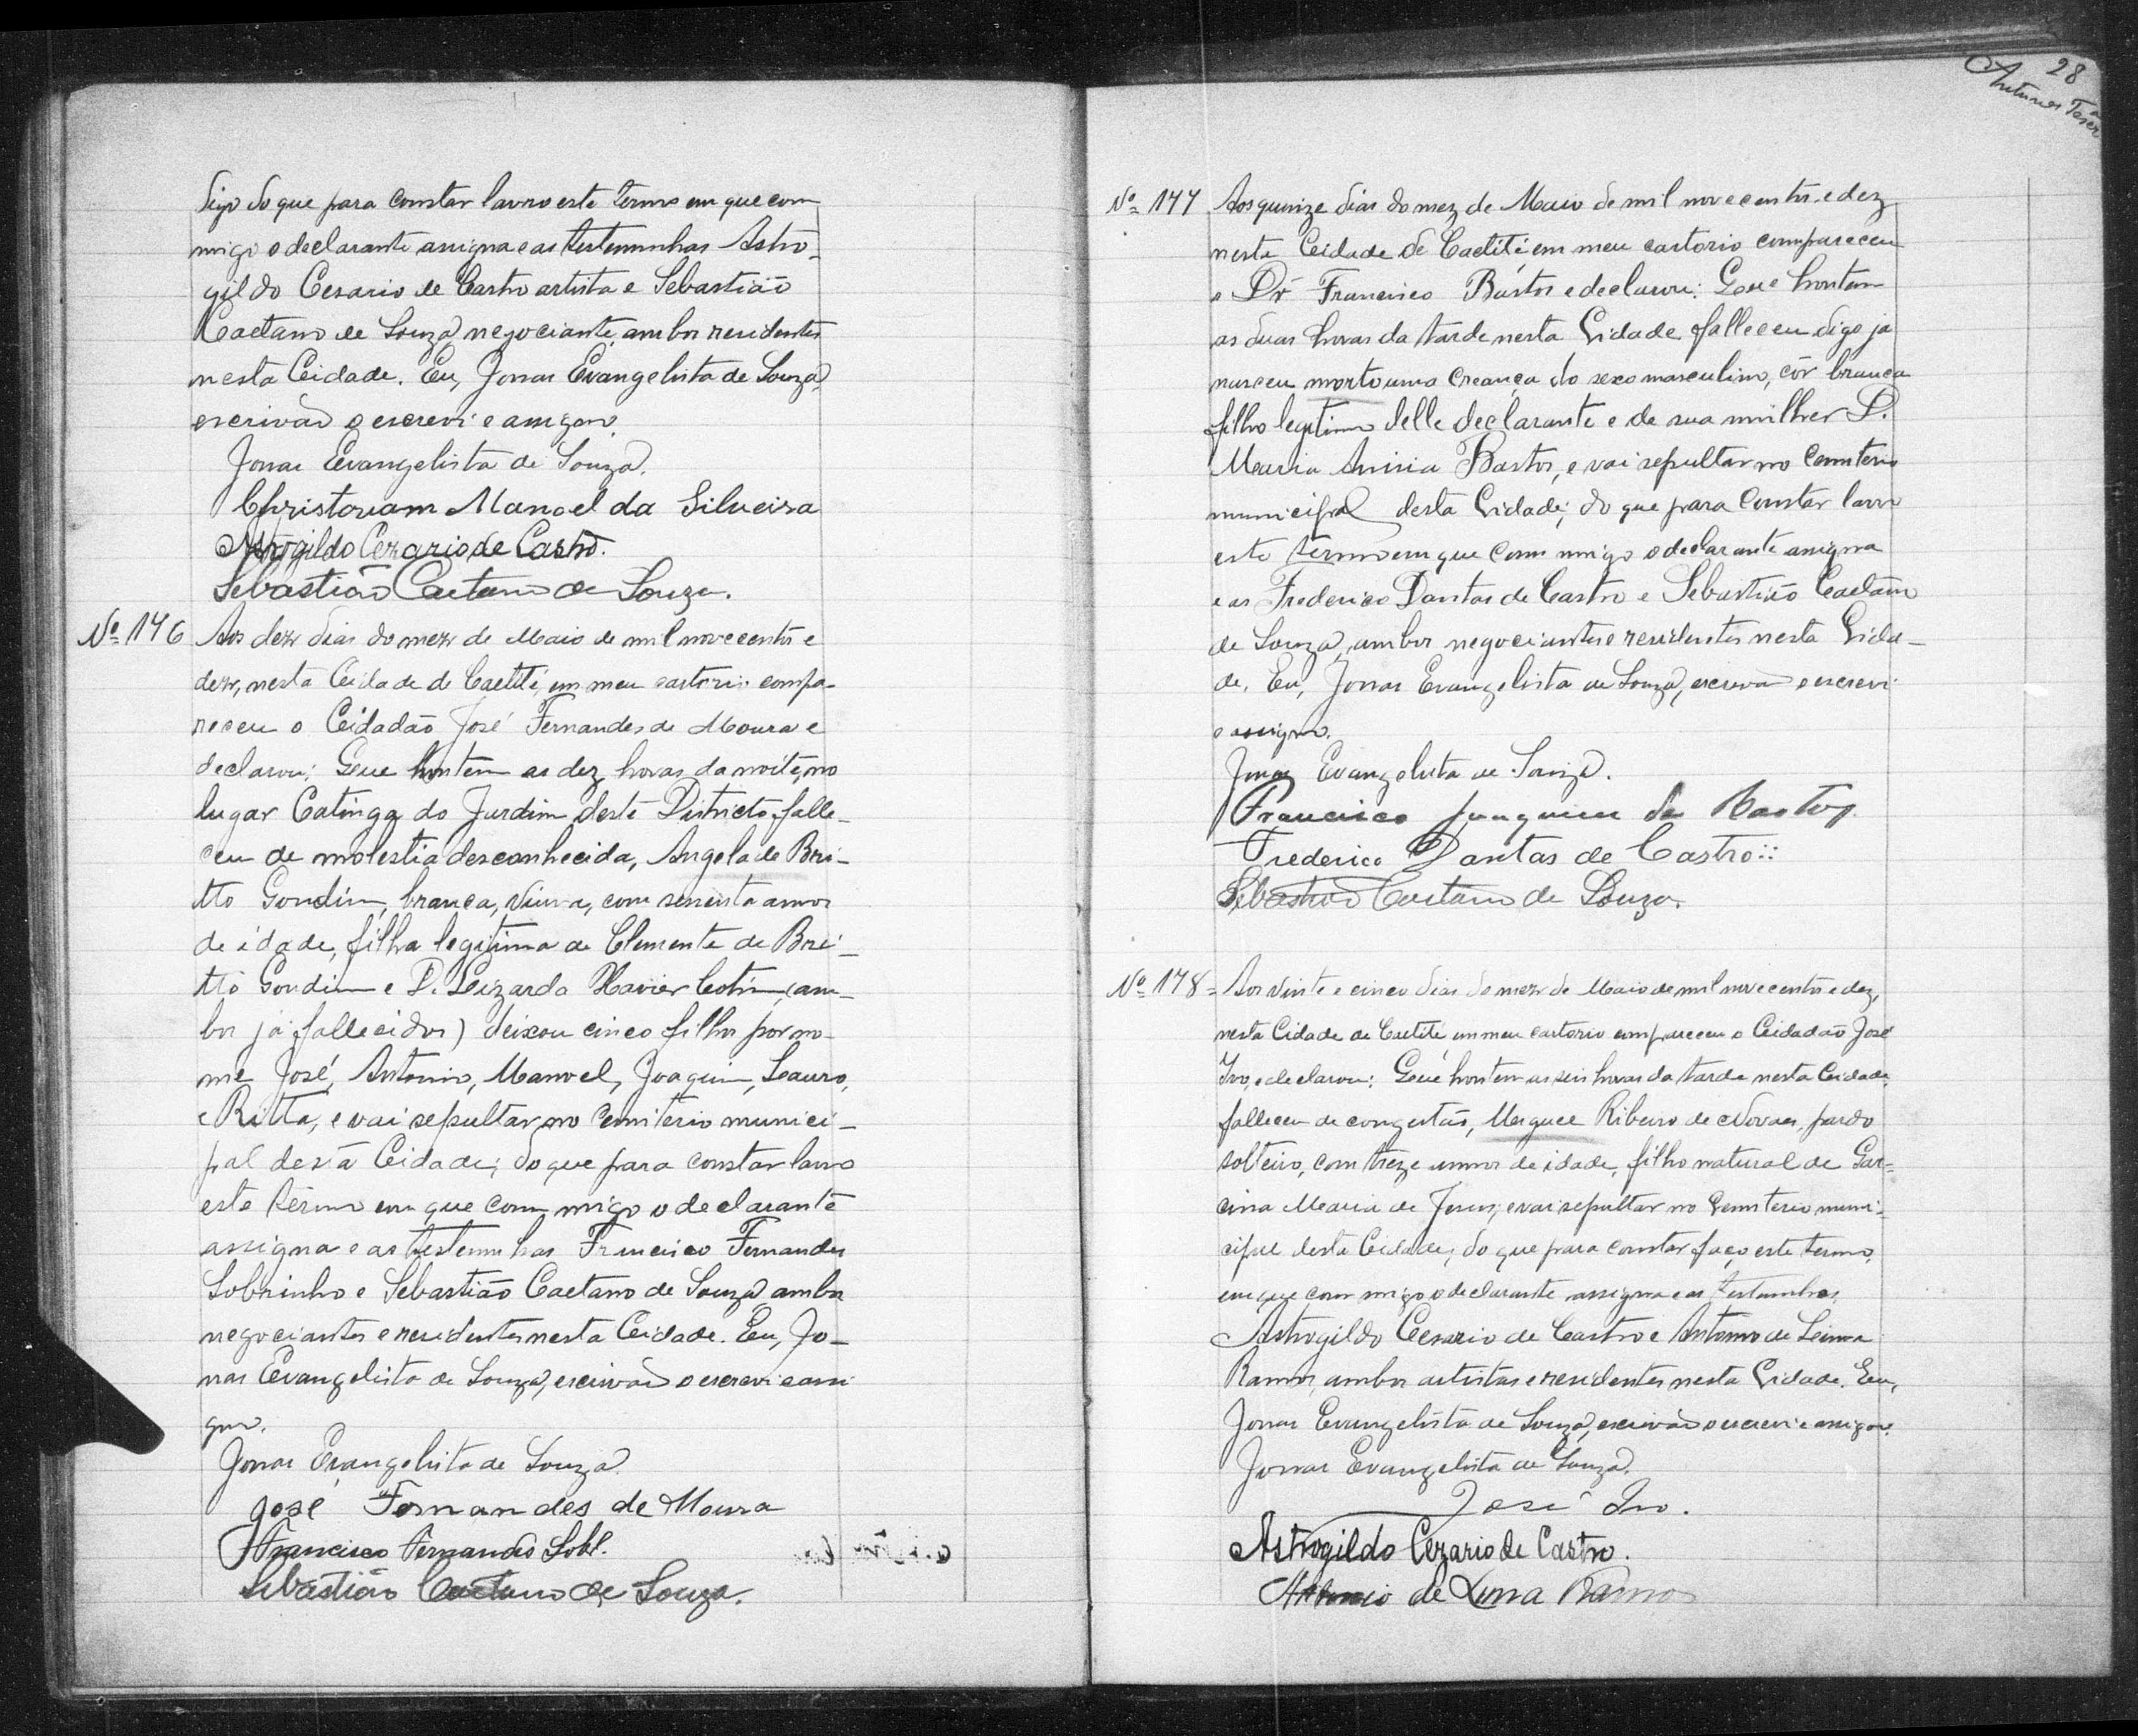 digo do que para constar lavro este termo em que com
migo o declarante assigna e as testemunhas Astro-
gildo Cesario de Castro artista e Sebastião
Caetano de Souza, negociante, ambos residentes
nesta Cidade. Eu, Jonas Evangelista de Souza,
escrivão o escrevi e assigno.
Jonas Evangelista de Souza.
Christovam Manoel da Silveira
Astrogildo Cezario de Castro.
Sebastião Caetano de Souza.
Nº 176 Aos dez dias do mez de Maio de mil novecentos e
dez, nesta Cidade de Caetité, em meu cartorio compa-
receu o Cidadão José Fernandes de Moura e
declarou: Que hontem as dez horas da noite, no
lugar Catinga do Jardim deste Districto, falle-
ceu de molestia desconhecida, Angela de Bri-
tto Gondim, branca, viuva, com sessenta annos
de idade, filha legitima de Clemente de Bri-
tto Gondim e D. Lizarda Xavier Cotrim, (am-
bos já fallecidos) deixou cinco filhos por no-
me José, Antonio, Manoel, Joaquim, Lauro,
e Ritta, e vai sepultar no Cemiterio munici-
pal desta Cidade; do que para constar lavro
este termo em que commigo o declarante
assigna e as testemunhas Francisco Fernandes
Sobrinho e Sebastião Caetano de Souza ambos
negociantes e residentes nesta Cidade. Eu, Jo-
nas Evangelista de Souza, escrivão o escrevi e assi
gno.
Jonas Evangelista de Souza.
José Fernandes de Moura
Francisco Fernandes Sobr.
Sebastião Caetano de Souza.
28
Antunes
Nº 177 Aos quinze dias do mez de Maio de mil novecentos e dez
nesta Cidade de Caetité em meu cartorio compareceu
o Dr Francisco Bastos e declarou: Que hontem
as duas horas da tarde nesta Cidade falleceu digo já
nasceu morto uma creança do sexo masculino, côr branca
filho legitimo delle declarante e de sua mulher D.
Maria Anisia Bastos, e vai sepultar no Cemiterio
municipal desta Cidade; do que para constar lavro
este termo em que commigo o declarante assigna
e as Frederico Dantas de Castro e Sebastião Caetano
de Souza, ambos negociantes e residentes nesta Cida-
de. Eu, Jonas Evangelista de Souza, escrivão o escrevi
e assigno.
Jonas Evangelista de Souza.
Francisco Junqueira de Bastos
Frederico Dantas de Castro::
Sebastião Caetano de Souza.
Nº 178= Aos vinte e cinco dias do mez de Maio de mil novecentos e dez,
nesta Cidade de Caetité em meu cartorio compareceu o Cidadão José
Ivo, e declarou: Que hontem as seis horas da tarde nesta Cidade,
falleceu de congestão, Miguel Ribeiro de Novaes, pardo
solteiro, com treze annos de idade, filho natural de Gar=
cina Maria de Jesus; e vai sepultar no Cemiterio muni-
cipal desta Cidade; do que para constar faço este termo,
em que commigo o declarante assigna e as testemunhas,
Astrogildo Cesario de Castro e Antonio de Lima
Ramos, ambos artistas e residentes nesta Cidade. Eu,
Jonas Evangelista de Souza, escrivão o escrevi e assigno.
Jonas Evangelista de Souza.
José Ivo.
Astrogildo Cezario de Castro.
Antonio de Lima Ramos